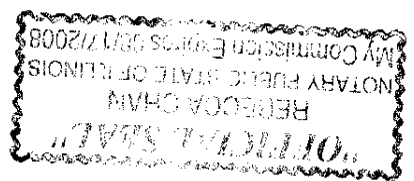 "OFFICIAL SEAL"
REBECCA CHAN
NOTARY PUBLIC STATE OF ILLINOIS
My Commission Expires 08/17/2008